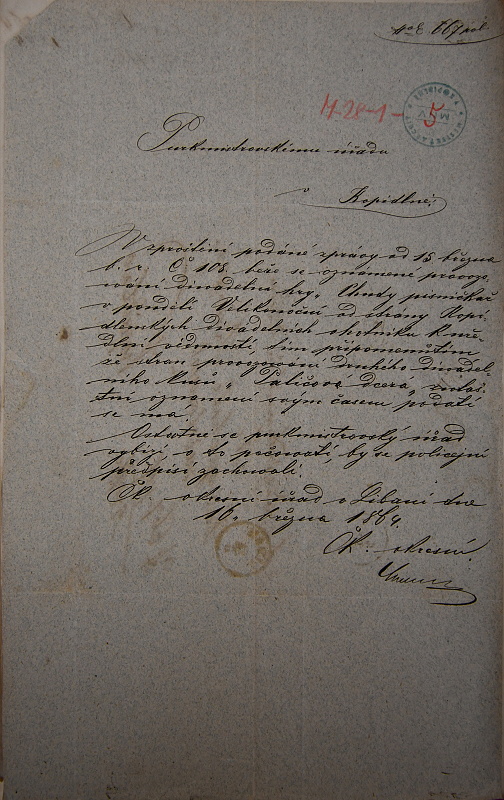 667 pol
H-28-1-5
Purkmistrovskému úřadu
v Kopidlně,
V zproštění podáné zprávy od 15 března
b. r. Č 108. béře se oznámené provozo
vání divadelní hry „Chudý písničkář
v pondělí Velikonoční od strany Kopi
dlenských divadelních ochotníku k úře
dní vědomosti tím připomenutím
že stran provozování druhého divadel
ního kusu „Paličova dcera" zvlás
tní oznámení svým časem podati
se má.
Ostatně se purkmistrovský úřad
vybízí, o to pečovati, by se policejní
předpisí zachovali.
Čk. okresní úřad v Libáni dne
16. března 1864.
Čk. okresní